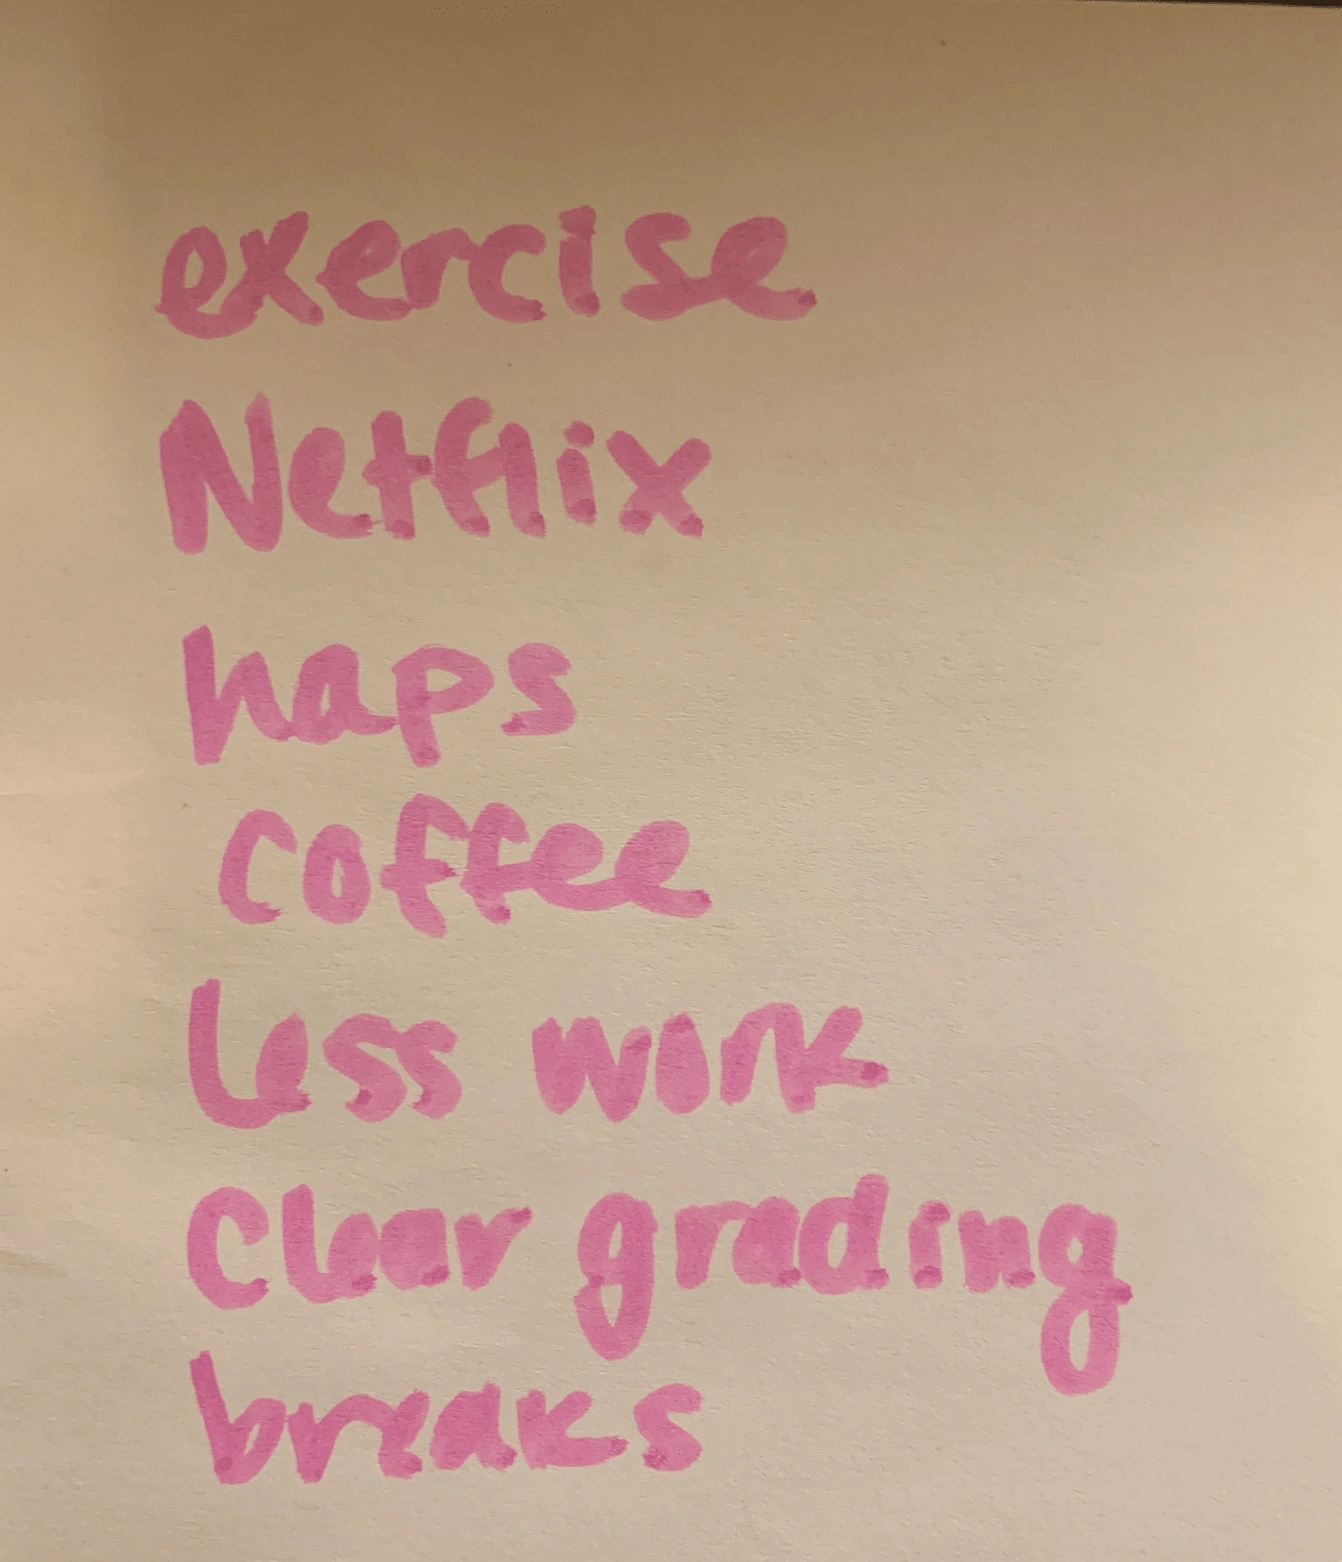 exercise
Netflix
naps
coffee
less work
Clear grading
breaks